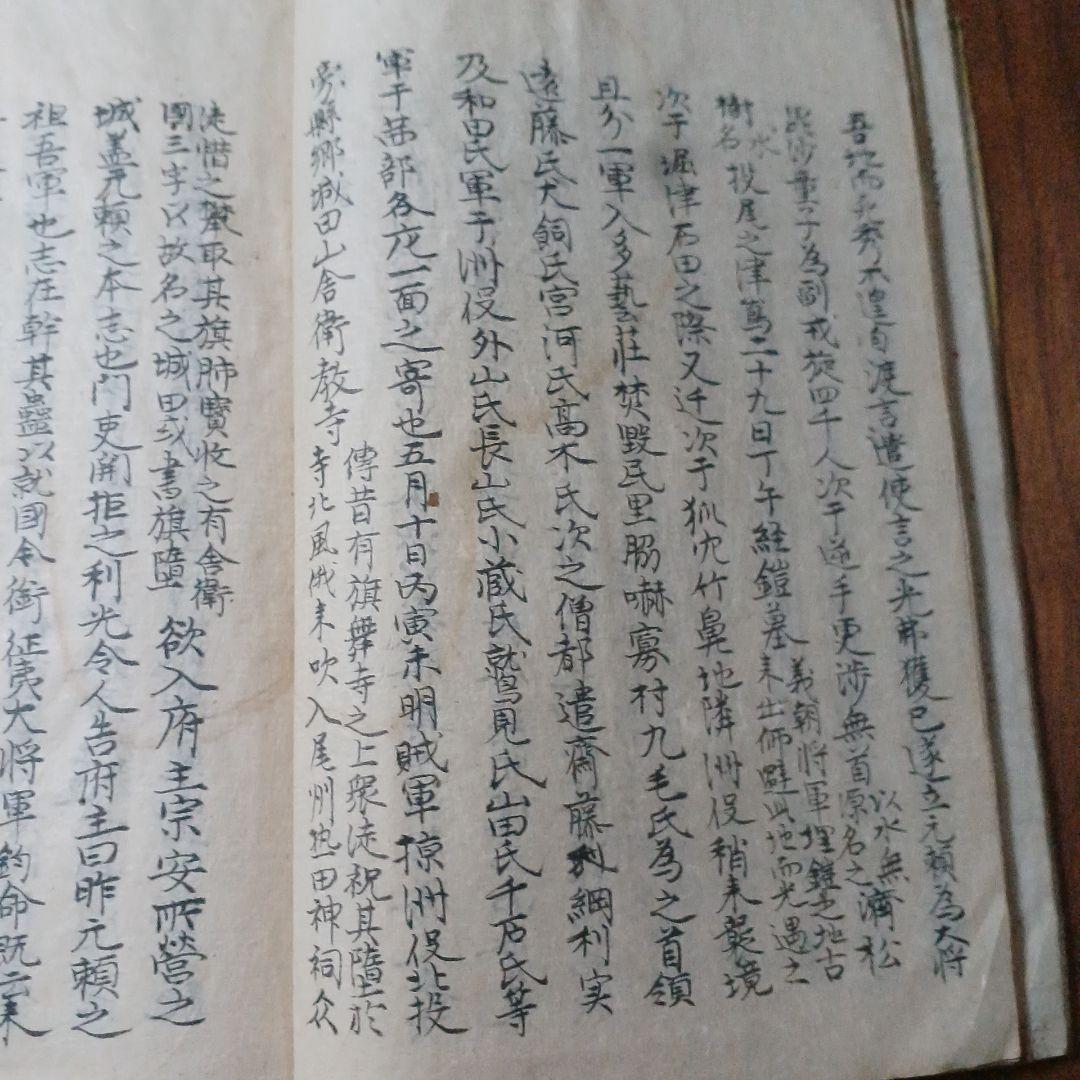 吾地而 不遑自渡言遣使言之光弗獲已遂立元頼為大将
為副戎旅四千人次于逆手更渉無首原以水無名之濟松
樹水名投尾之津焉二十九日丁午経鎧墓義朝将軍埋鎧之地古来出師避此地而光遇之
次于堀津石田之際又迁次于狐穴竹鼻地隣洲俣稍来襲境
且分一軍入多藝莊焚毀民里脇嚇寡村九毛氏為之首領
遠藤氏犬飼氏宮河氏髙木氏次之僧都遣齋藤利綱利実
及和田氏軍于洲俣外山氏長山氏小蔵氏鷲見氏山田氏千石氏等
軍于茜部各充一面之寄也五月十日丙寅未明賊軍掠洲俣北投
旁縣郷城田山舎衛教寺傳昔有旗舞寺之上衆徒祝其墮於寺北風俄来吹入尾州熱田神祠众
徒惜之輙取其旗肺寳收之有舎衛國三字以故名之城田或書旗墮欲入府主宗安所營之
城盖元頼之本志也門吏開拒之利光令人告府主曰昨元頼之
祖吾軍也志在幹其蠱以就國令銜征夷大将軍鈞命既云来